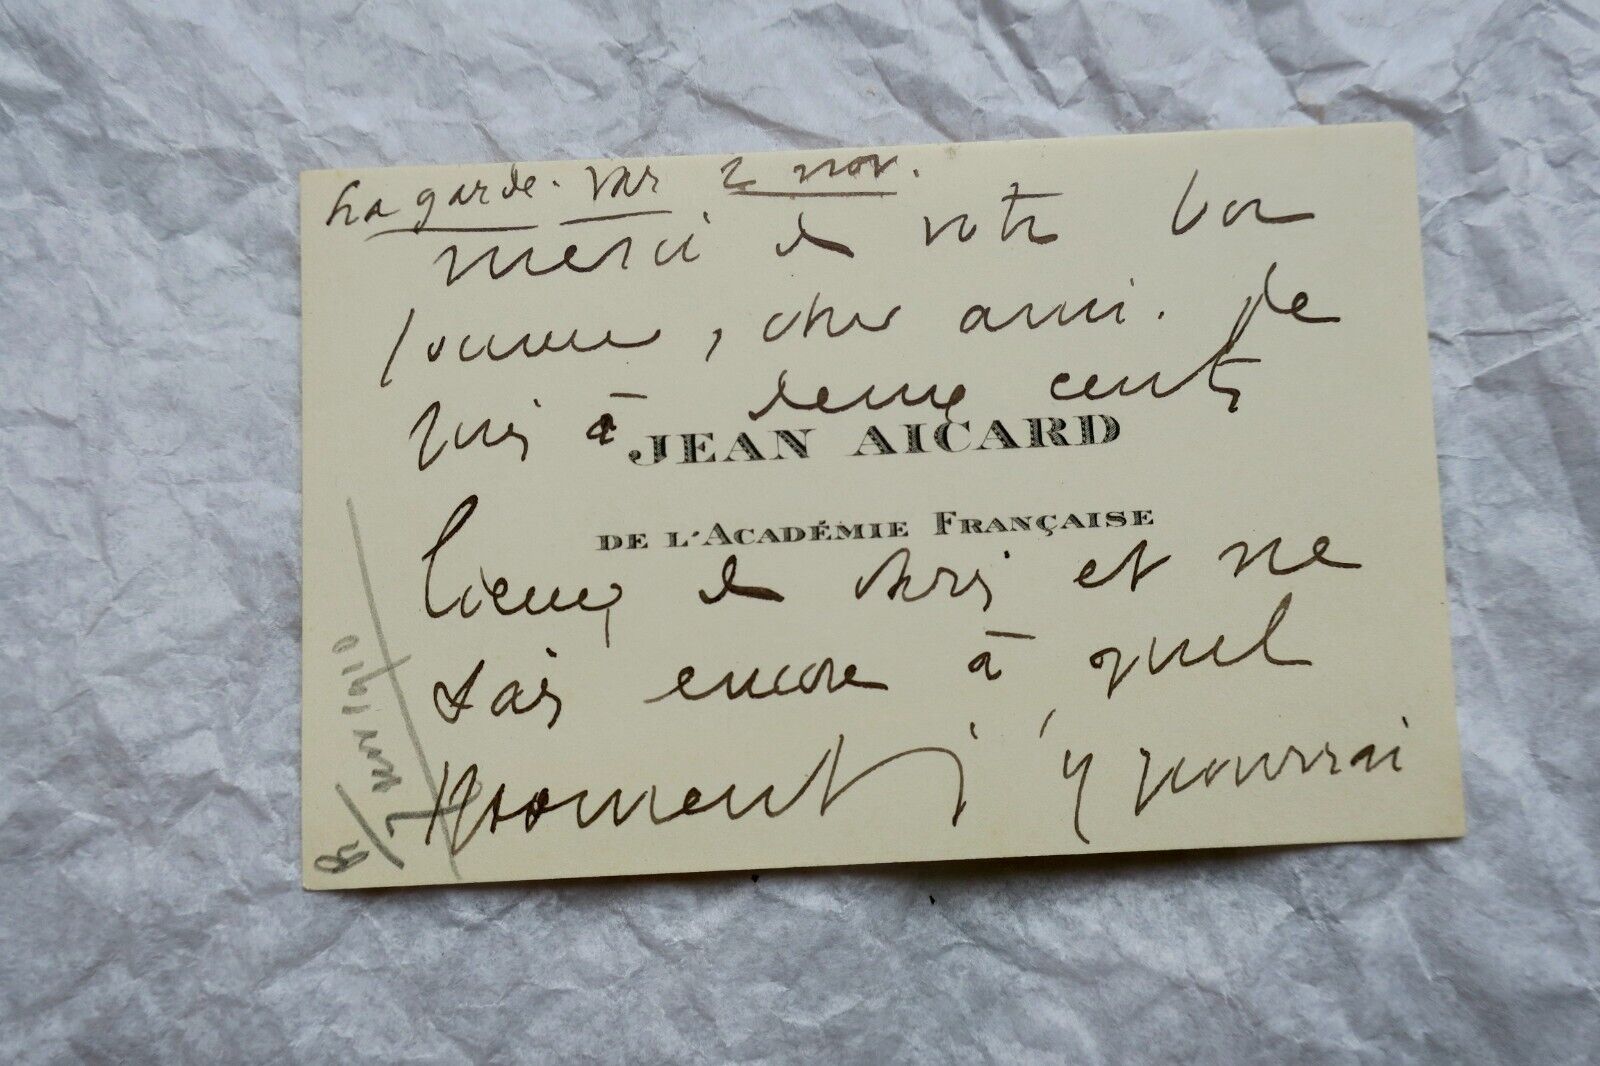 La garde. Var 2 nov.
merci de votre bon
souvenir, cher ami. Je
suis à deux cents
JEAN AICARD
DE L'ACADÉMIE FRANÇAISE
lieues de chris et ne
sais encore à quel
moment j'y pourrai
R/ 7 nov 1910